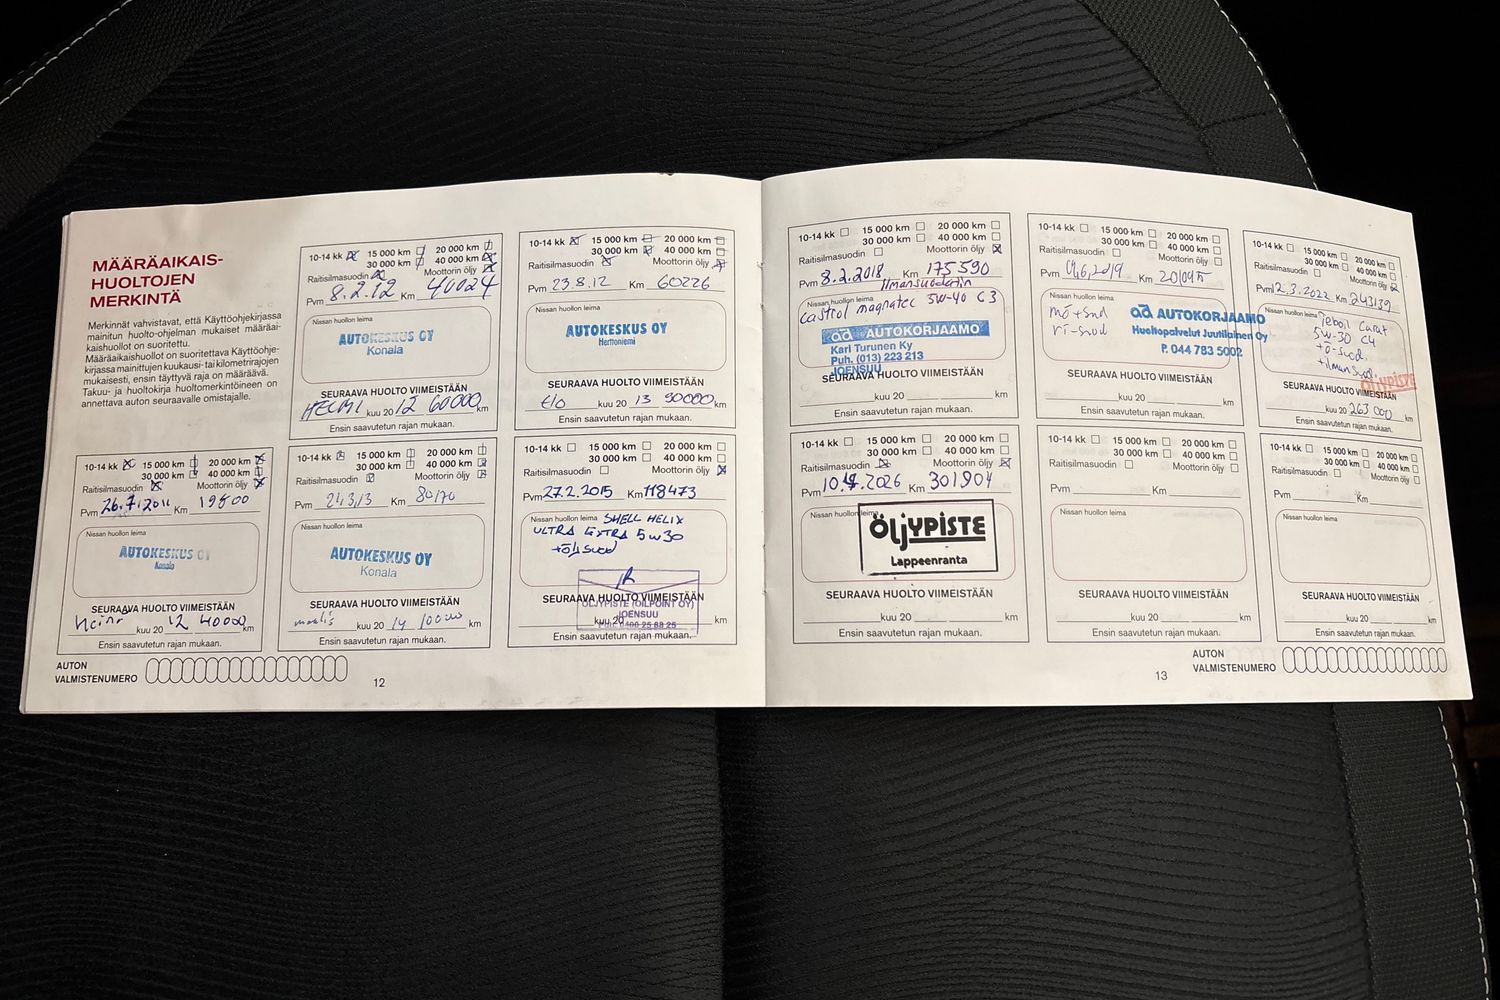 MÄÄRÄAIKAIS-
HUOLTOJEN
MERKINTÄ
Merkinnät vahvistavat, että Käyttöohjekirjassa
mainitun huolto-ohjelman mukaiset määräai-
kaishuollot on suoritettu.
Määräaikaishuollot on suoritettava Käyttöohje-
kirjassa mainittujen kuukausi- tai kilometrirajojen
mukaisesti, ensin täyttyvä raja on määräävä.
Takuu- ja huoltokirja huoltomerkintöineen on
annettava auton seuraavalle omistajalle.
10-14 kk 15 000 km 20 000 km
30 000 km 40 000 km
Raitisilmasuodin Moottorin öljy
Pvm 8.2.12 Km 40024
Nissan huollon leima
AUTOKESKUS OY
Konala
SEURAAVA HUOLTO VIIMEISTÄÄN
HELMI kuu 20 12 60000 km
Ensin saavutetun rajan mukaan.
10-14 kk 15 000 km 20 000 km
30 000 km 40 000 km
Raitisilmasuodin Moottorin öljy
Pvm 23.8.12 Km 60226
Nissan huollon leima
AUTOKESKUS OY
Herttoniemi
SEURAAVA HUOLTO VIIMEISTÄÄN
elo kuu 20 13 90000 km
Ensin saavutetun rajan mukaan.
10-14 kk 15 000 km 20 000 km
30 000 km 40 000 km
Raitisilmasuodin Moottorin öljy
Pvm 26.7.2011 Km 19800
Nissan huollon leima
AUTOKESKUS OY
Konala
SEURAAVA HUOLTO VIIMEISTÄÄN
kuu 20 12 40000 km
Ensin saavutetun rajan mukaan.
10-14 kk 15 000 km 20 000 km
30 000 km 40 000 km
Raitisilmasuodin Moottorin öljy
Pvm Km 80170
Nissan huollon leima
AUTOKESKUS OY
Konala
SEURAAVA HUOLTO VIIMEISTÄÄN
maalis kuu 20 14 100000 km
Ensin saavutetun rajan mukaan.
10-14 kk 15 000 km 20 000 km
30 000 km 40 000 km
Raitisilmasuodin Moottorin öljy
Pvm 27.2.2015 Km 118473
Nissan huollon leima SHELL HELIX
ULTRA EXTRA 5w30
+öljysuod
SEURAAVA HUOLTO VIIMEISTÄÄN
ÖLJYPISTE (OILPOINT OY)
JOENSUU
kuu 20 km
Ensin saavutetun rajan mukaan.
AUTON
VALMISTENUMERO
12
10-14 kk 15 000 km 20 000 km
30 000 km 40 000 km
Raitisilmasuodin Moottorin öljy
Pvm 8.2.2018 Km 175590
Ilmansuodatin
Nissan huollon leima
castrol magnatec 5W-40 C3
ad AUTOKORJAAMO
Kari Turunen Ky
Puh. (013) 223 213
JOENSUU
SEURAAVA HUOLTO VIIMEISTÄÄN
kuu 20 km
Ensin saavutetun rajan mukaan.
10-14 kk 15 000 km 20 000 km
30 000 km 40 000 km
Raitisilmasuodin Moottorin öljy
Pvm Km
Nissan huollon leima
mö+snd
ri-snod
ad AUTOKORJAAMO
Huoltopalvelut Juutilainen Oy
P. 044 783 5002
SEURAAVA HUOLTO VIIMEISTÄÄN
kuu 20 km
Ensin saavutetun rajan mukaan.
10-14 kk 15 000 km 20 000 km
30 000 km 40 000 km
Raitisilmasuodin Moottorin öljy
Pvm 12.3.2022 Km 243139
Nissan huollon leima Teboil Carat
5w-30 C4
+ö-suod.
+ilmansuod.
ÖLJYPISTE
SEURAAVA HUOLTO VIIMEISTÄÄN
kuu 20 263 000 km
Ensin saavutetun rajan mukaan.
10-14 kk 15 000 km 20 000 km
30 000 km 40 000 km
Raitisilmasuodin Moottorin öljy
Pvm Km 301904
Nissan huollon leima
ÖLJYPISTE
Lappeenranta
SEURAAVA HUOLTO VIIMEISTÄÄN
kuu 20 km
Ensin saavutetun rajan mukaan.
10-14 kk 15 000 km 20 000 km
30 000 km 40 000 km
Raitisilmasuodin Moottorin öljy
Pvm Km
Nissan huollon leima
SEURAAVA HUOLTO VIIMEISTÄÄN
kuu 20 km
Ensin saavutetun rajan mukaan.
10-14 kk 15 000 km 20 000 km
30 000 km 40 000 km
Raitisilmasuodin Moottorin öljy
Pvm Km
Nissan huollon leima
SEURAAVA HUOLTO VIIMEISTÄÄN
kuu 20 km
Ensin saavutetun rajan mukaan.
13
AUTON
VALMISTENUMERO